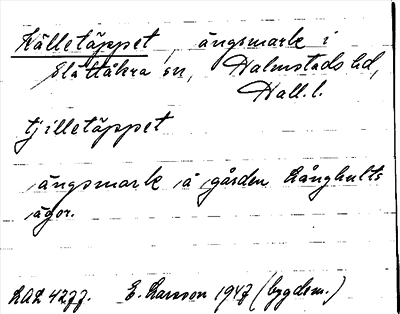 Källetäppet, ängsmark i
Slättåkra sn, Halmstads hd,
Hall. l.
tjilletäppet
ängsmark å gården Långhults
ägor.
LAL 4277. E. Larsson 1947 (bygdem.)